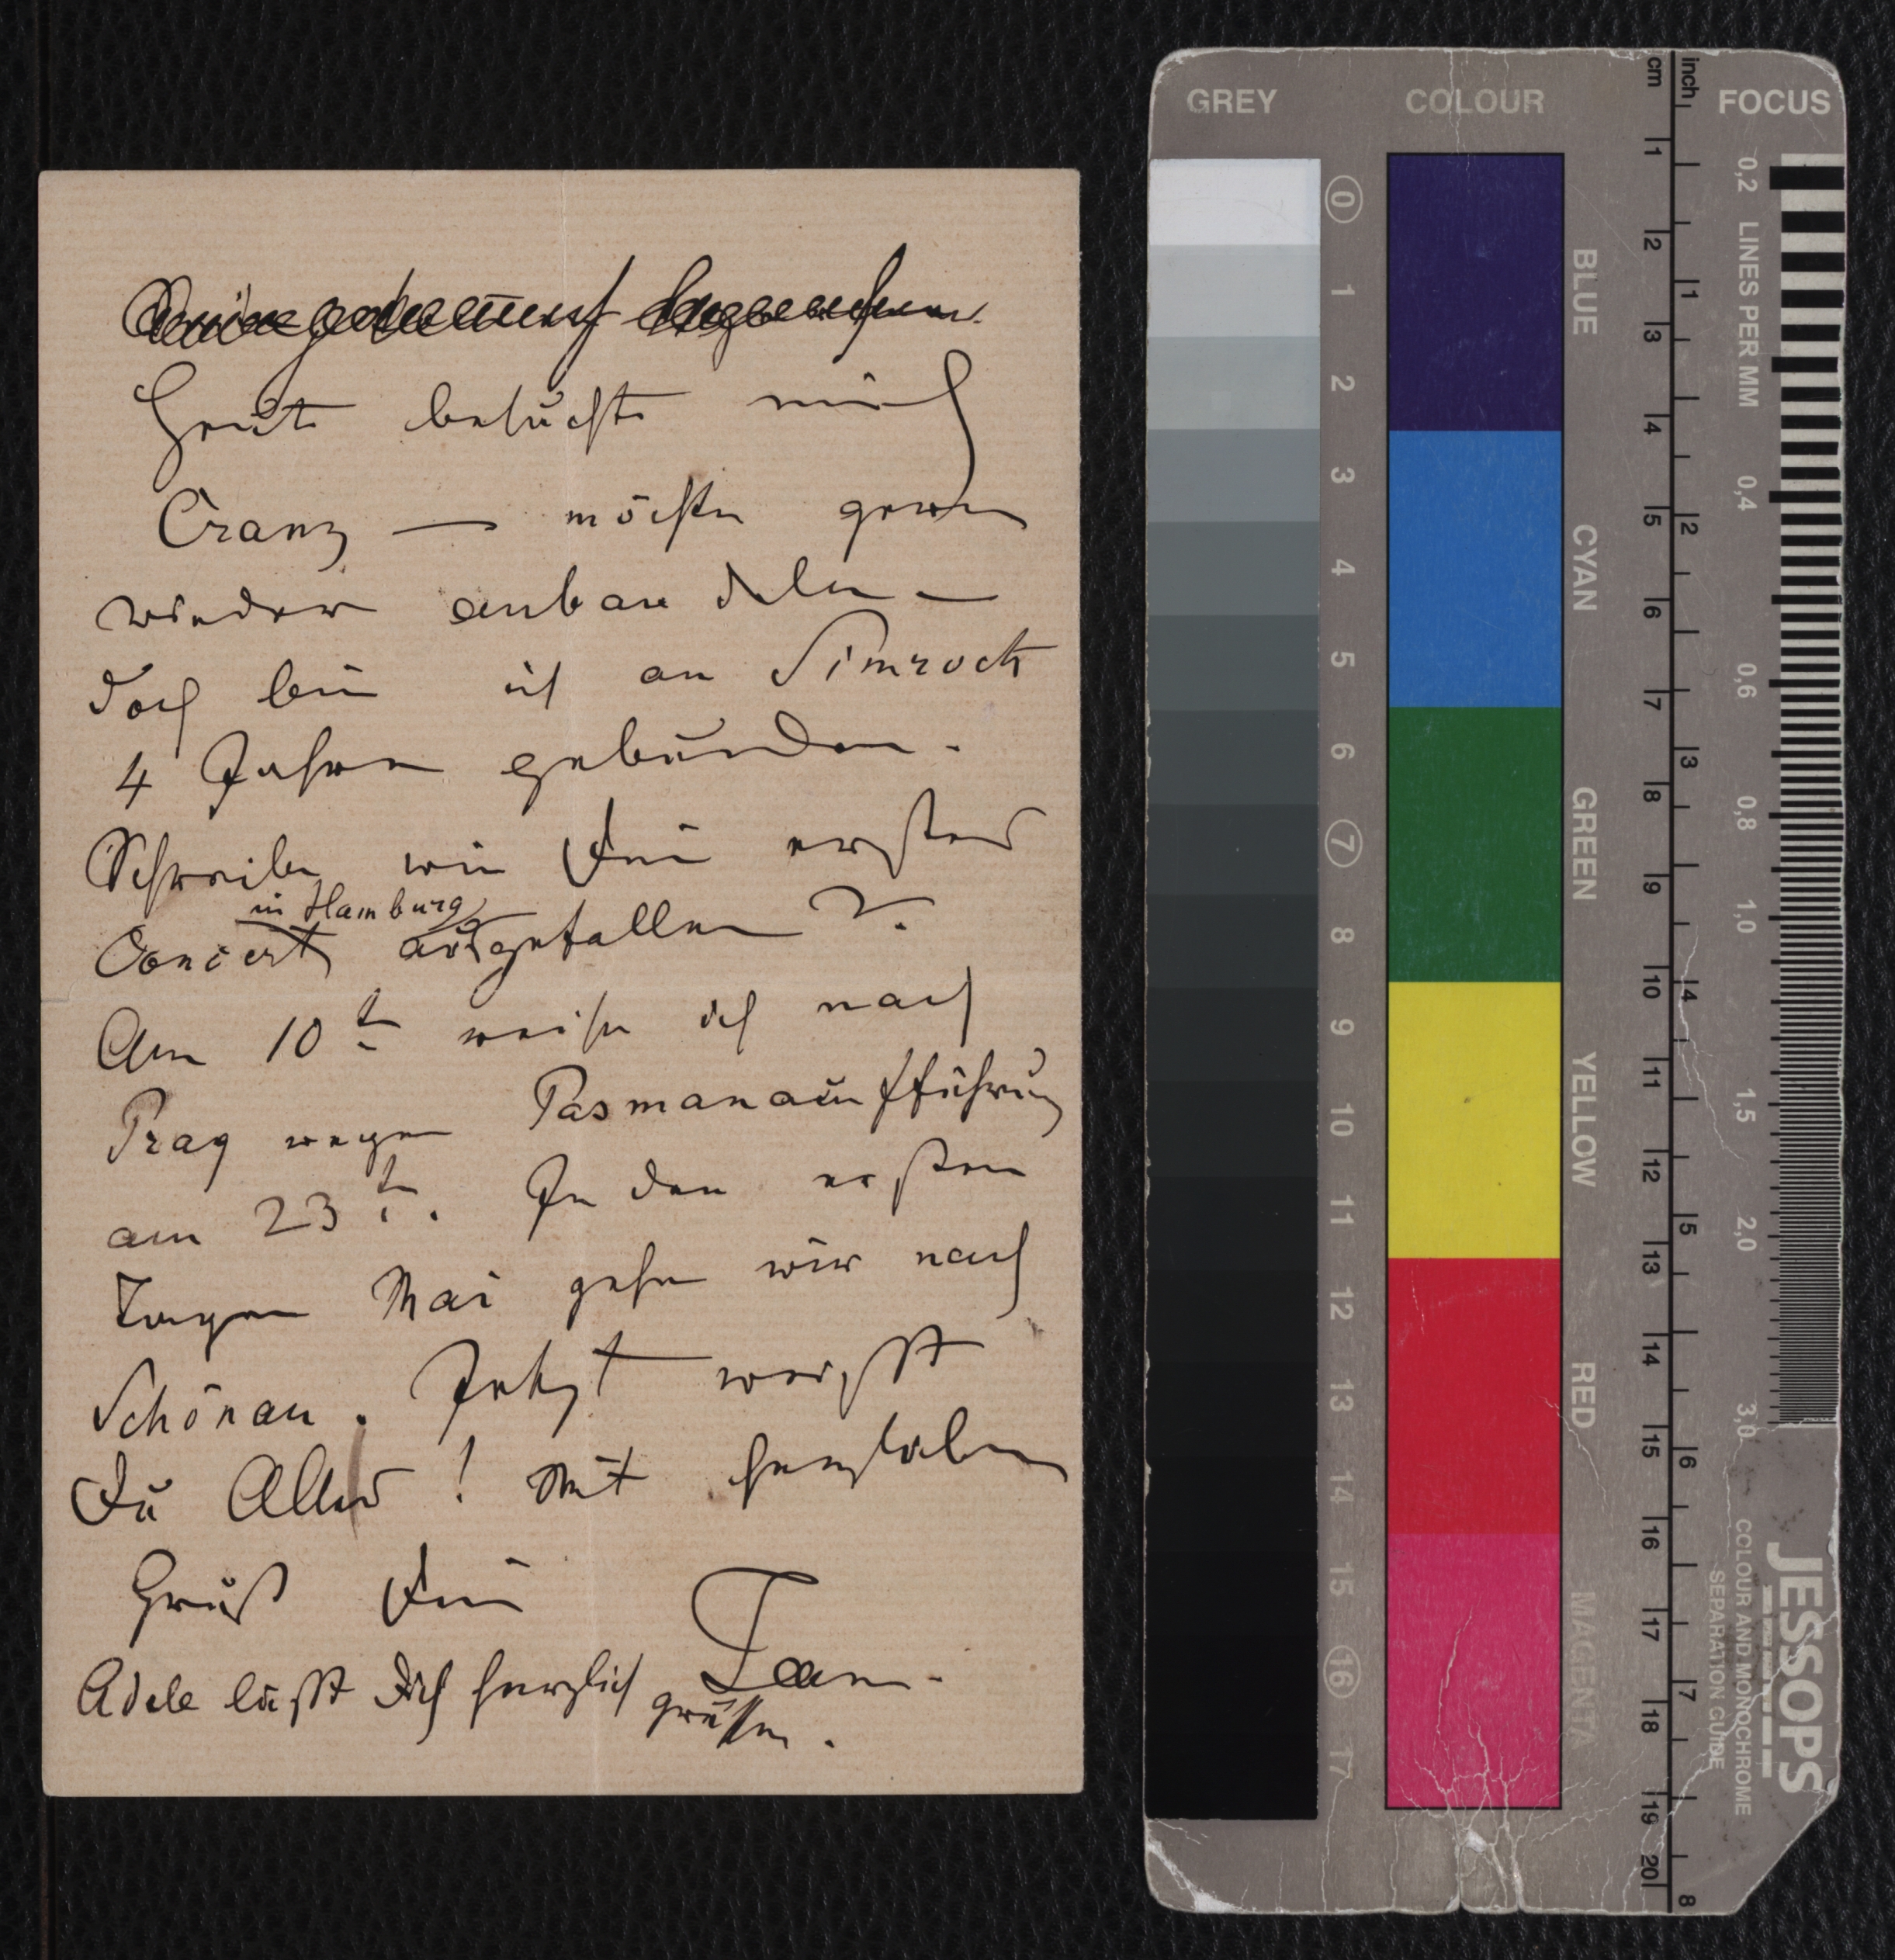 Heute besuchte mich
Cranz — möchte gerne
wieder anbandeln —
doch bin ich an Simrock
4 Jahre gebunden.
Schreibe wie Dein erstes
in Hamburg
Concert ausgefallen ?.
Am 10t reise ich nach
Prag wegen Pasmanaufführung
am 23t. In den ersten
Tagen Mai gehen wir nach
Schönau. Jetzt weißt
Du Alles! Mit herzlichem
Gruß Dein
Jean.
Adele läßt Dich herzlich grüßen.
GREY
COLOUR
cm
inch
FOCUS
0
1
2
3
4
5
6
7
8
9
10
11
12
13
14
15
16
17
BLUE
CYAN
GREEN
YELLOW
RED
MAGENTA
1
2
3
4
5
6
7
8
9
10
11
12
13
14
15
16
17
18
19
20
1
2
3
4
5
6
7
8
0,2 LINES PER MM
0,4
0,6
0,8
1,0
1,5
2,0
3,0
JESSOPS
COLOUR AND MONOCHROME
SEPARATION GUIDE